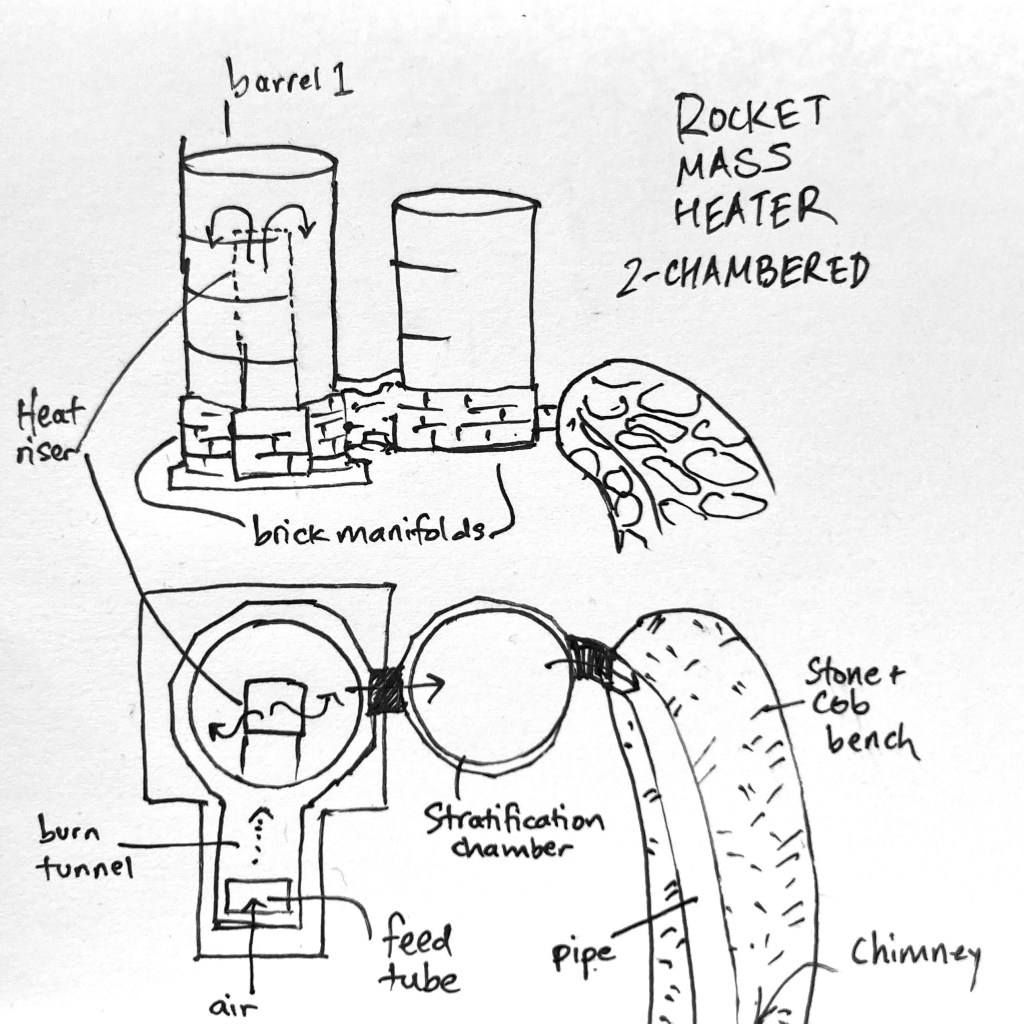 barrel 1
ROCKET
MASS
HEATER
2-CHAMBERED
Heat
riser
brick manifolds
Stone +
Cob
bench
Stratification
chamber
burn
tunnel
feed
tube
pipe
Chimney
air